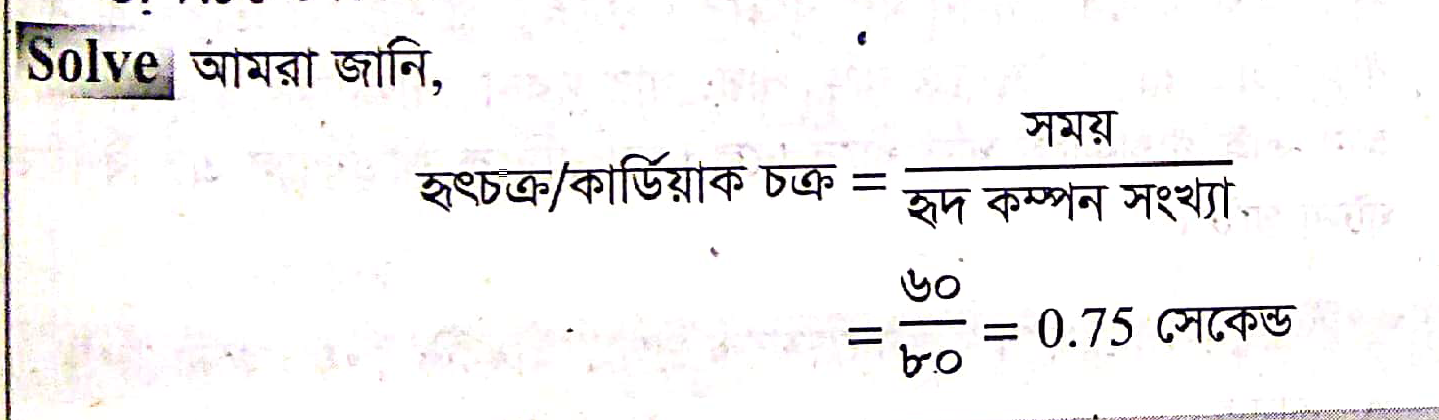 Solve আমরা জানি,
হৃৎচক্র/কার্ডিয়াক চক্র = সময় / হৃদ কম্পন সংখ্যা
= ৬০ / ৮০ = 0.75 সেকেন্ড